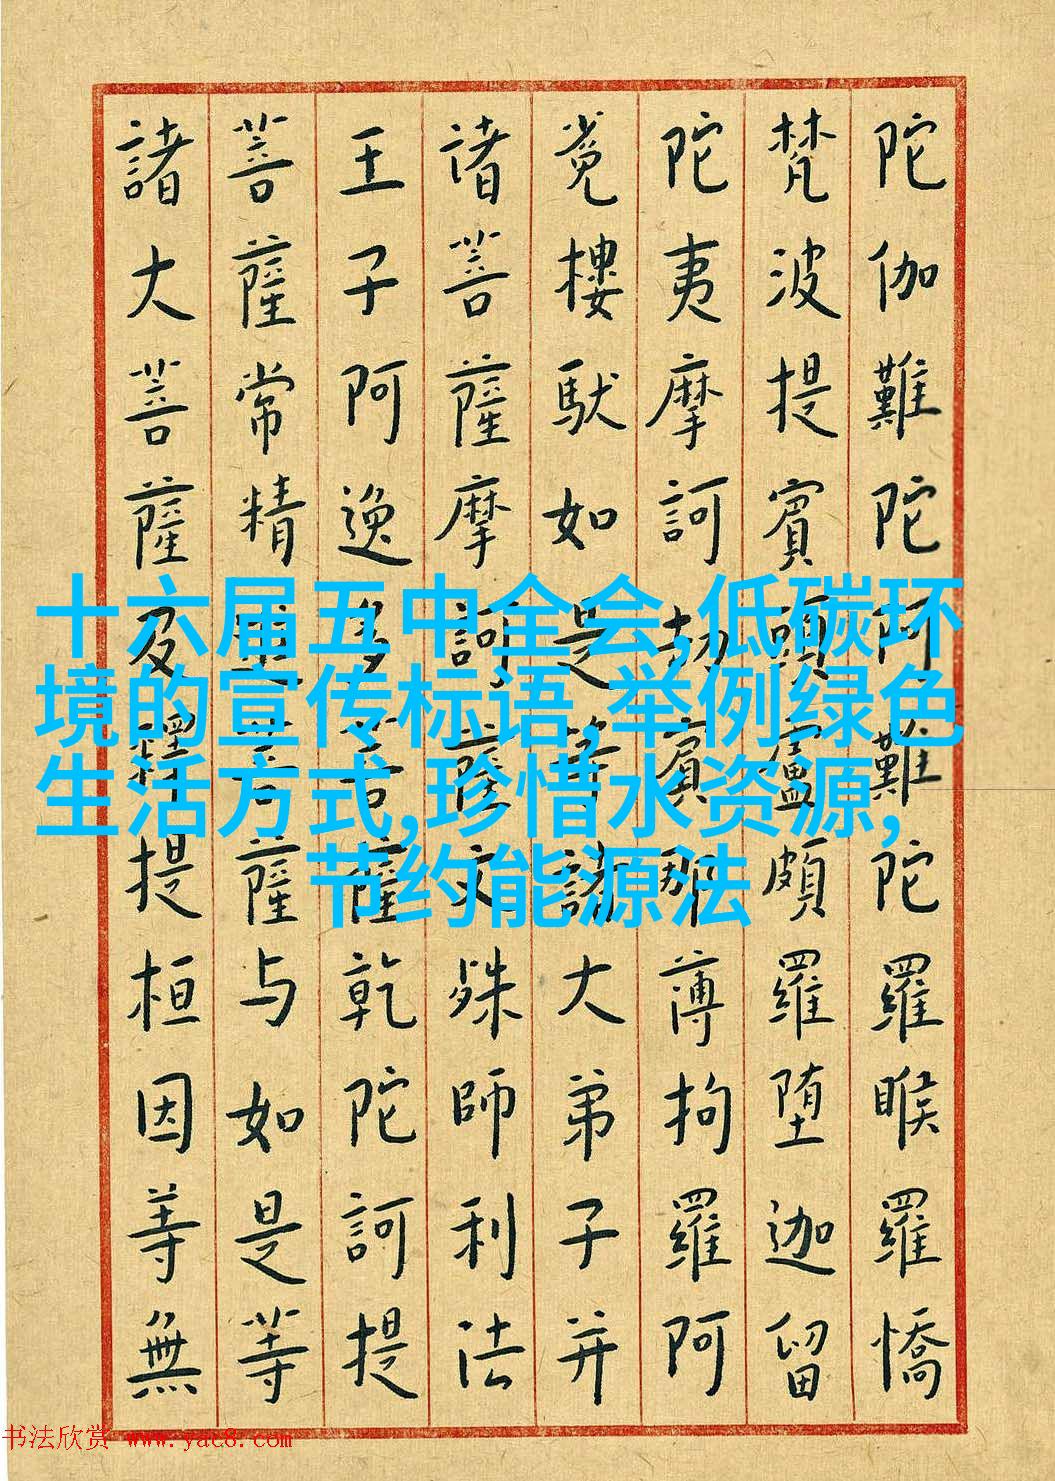 陀伽難陀阿難陀羅睺羅憍
梵波提賓頭盧頗羅堕迦留
陀夷摩訶劫賓那薄拘羅阿
㝹樓馱如是等諸大弟子并
诸菩薩摩訶薩文殊師利法
王子阿逸多菩薩乾陀訶提
菩薩常精進菩薩与如是等
諸大菩薩及釋提桓因等無
十六届五中全会,低碳环
境的宣传标语,举例绿色
生活方式,珍惜水资源,
节约能源法
书法欣赏 www.yac8.com